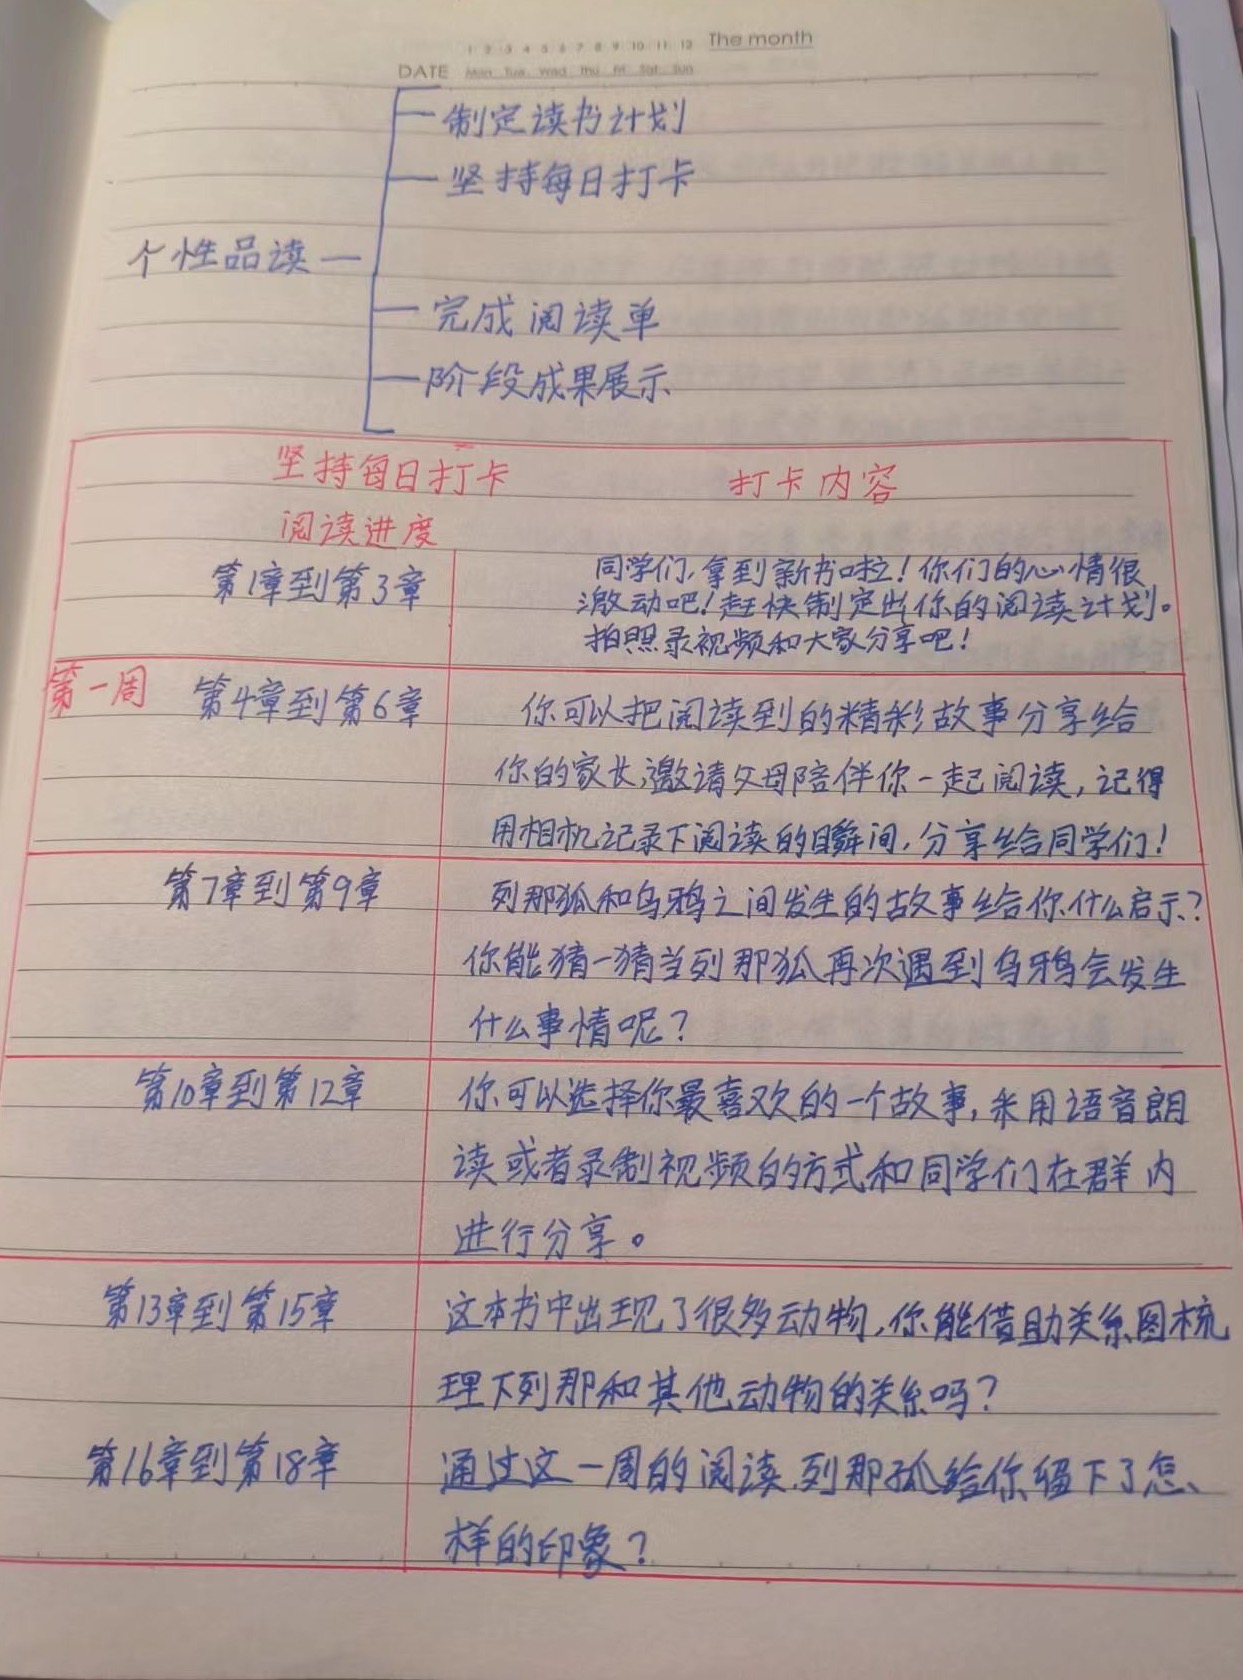 1 2 3 4 5 6 7 8 9 10 11 12 The month
DATE Mon Tue Wed Thu Fri Sat Sun
制定读书计划
坚持每日打卡
个性品读
完成阅读单
阶段成果展示
坚持每日打卡 打卡内容
阅读进度
第1章到第3章 同学们,拿到新书啦!你们的心情很
激动吧!赶快制定出你的阅读计划。
拍照录视频和大家分享吧!
第一周 第4章到第6章 你可以把阅读到的精彩故事分享给
你的家长,邀请父母陪伴你一起阅读,记得
用相机记录下阅读的瞬间,分享给同学们!
第7章到第9章 列那狐和乌鸦之间发生的故事给你什么启示?
你能猜一猜当列那狐再次遇到乌鸦会发生
什么事情呢?
第10章到第12章 你可以选择你最喜欢的一个故事,采用语音朗
读或者录制视频的方式和同学们在群内
进行分享。
第13章到第15章 这本书中出现了很多动物,你能借助关系图梳
理下列那和其他动物的关系吗?
第16章到第18章 通过这一周的阅读,列那狐给你留下了怎
样的印象?